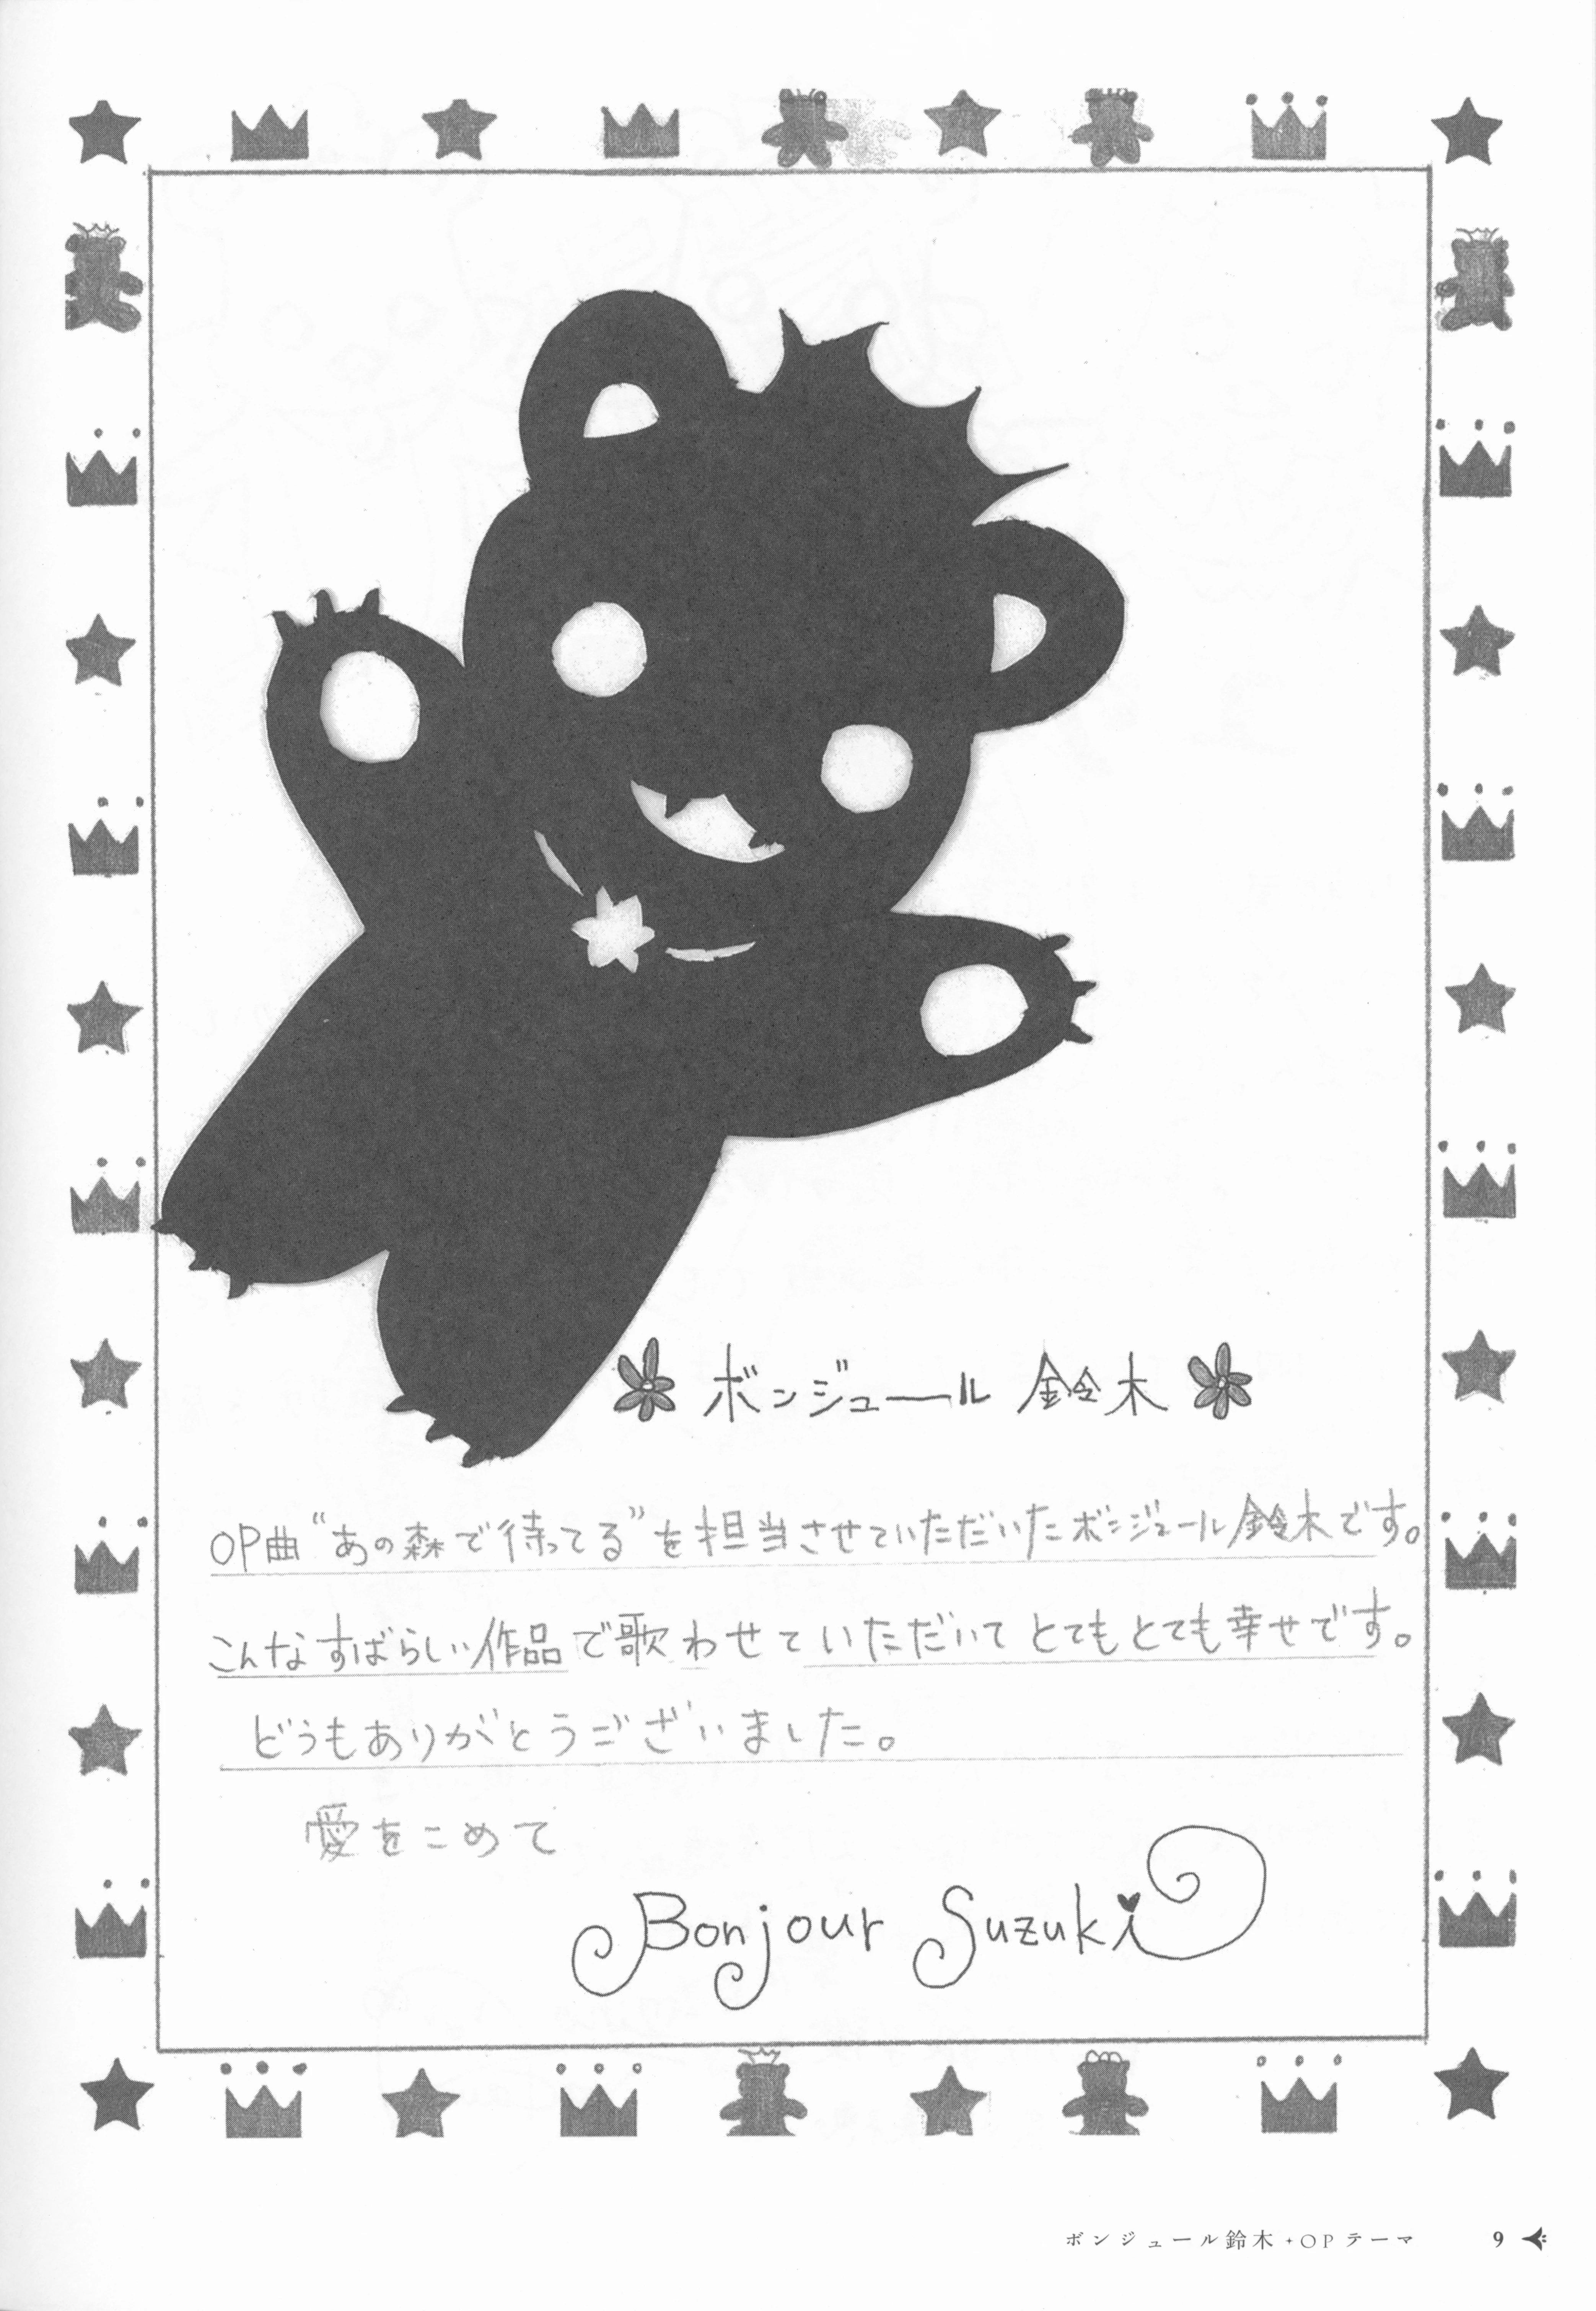 ボンジュール 鈴木
OP曲“あの森で待ってる”を担当させていただいたボンジュール鈴木です。
こんなすばらしい作品で歌わせていただいてとてもとても幸せです。
どうもありがとうございました。
愛をこめて
Bonjour Suzuki
ボンジュール鈴木 + OPテーマ 9